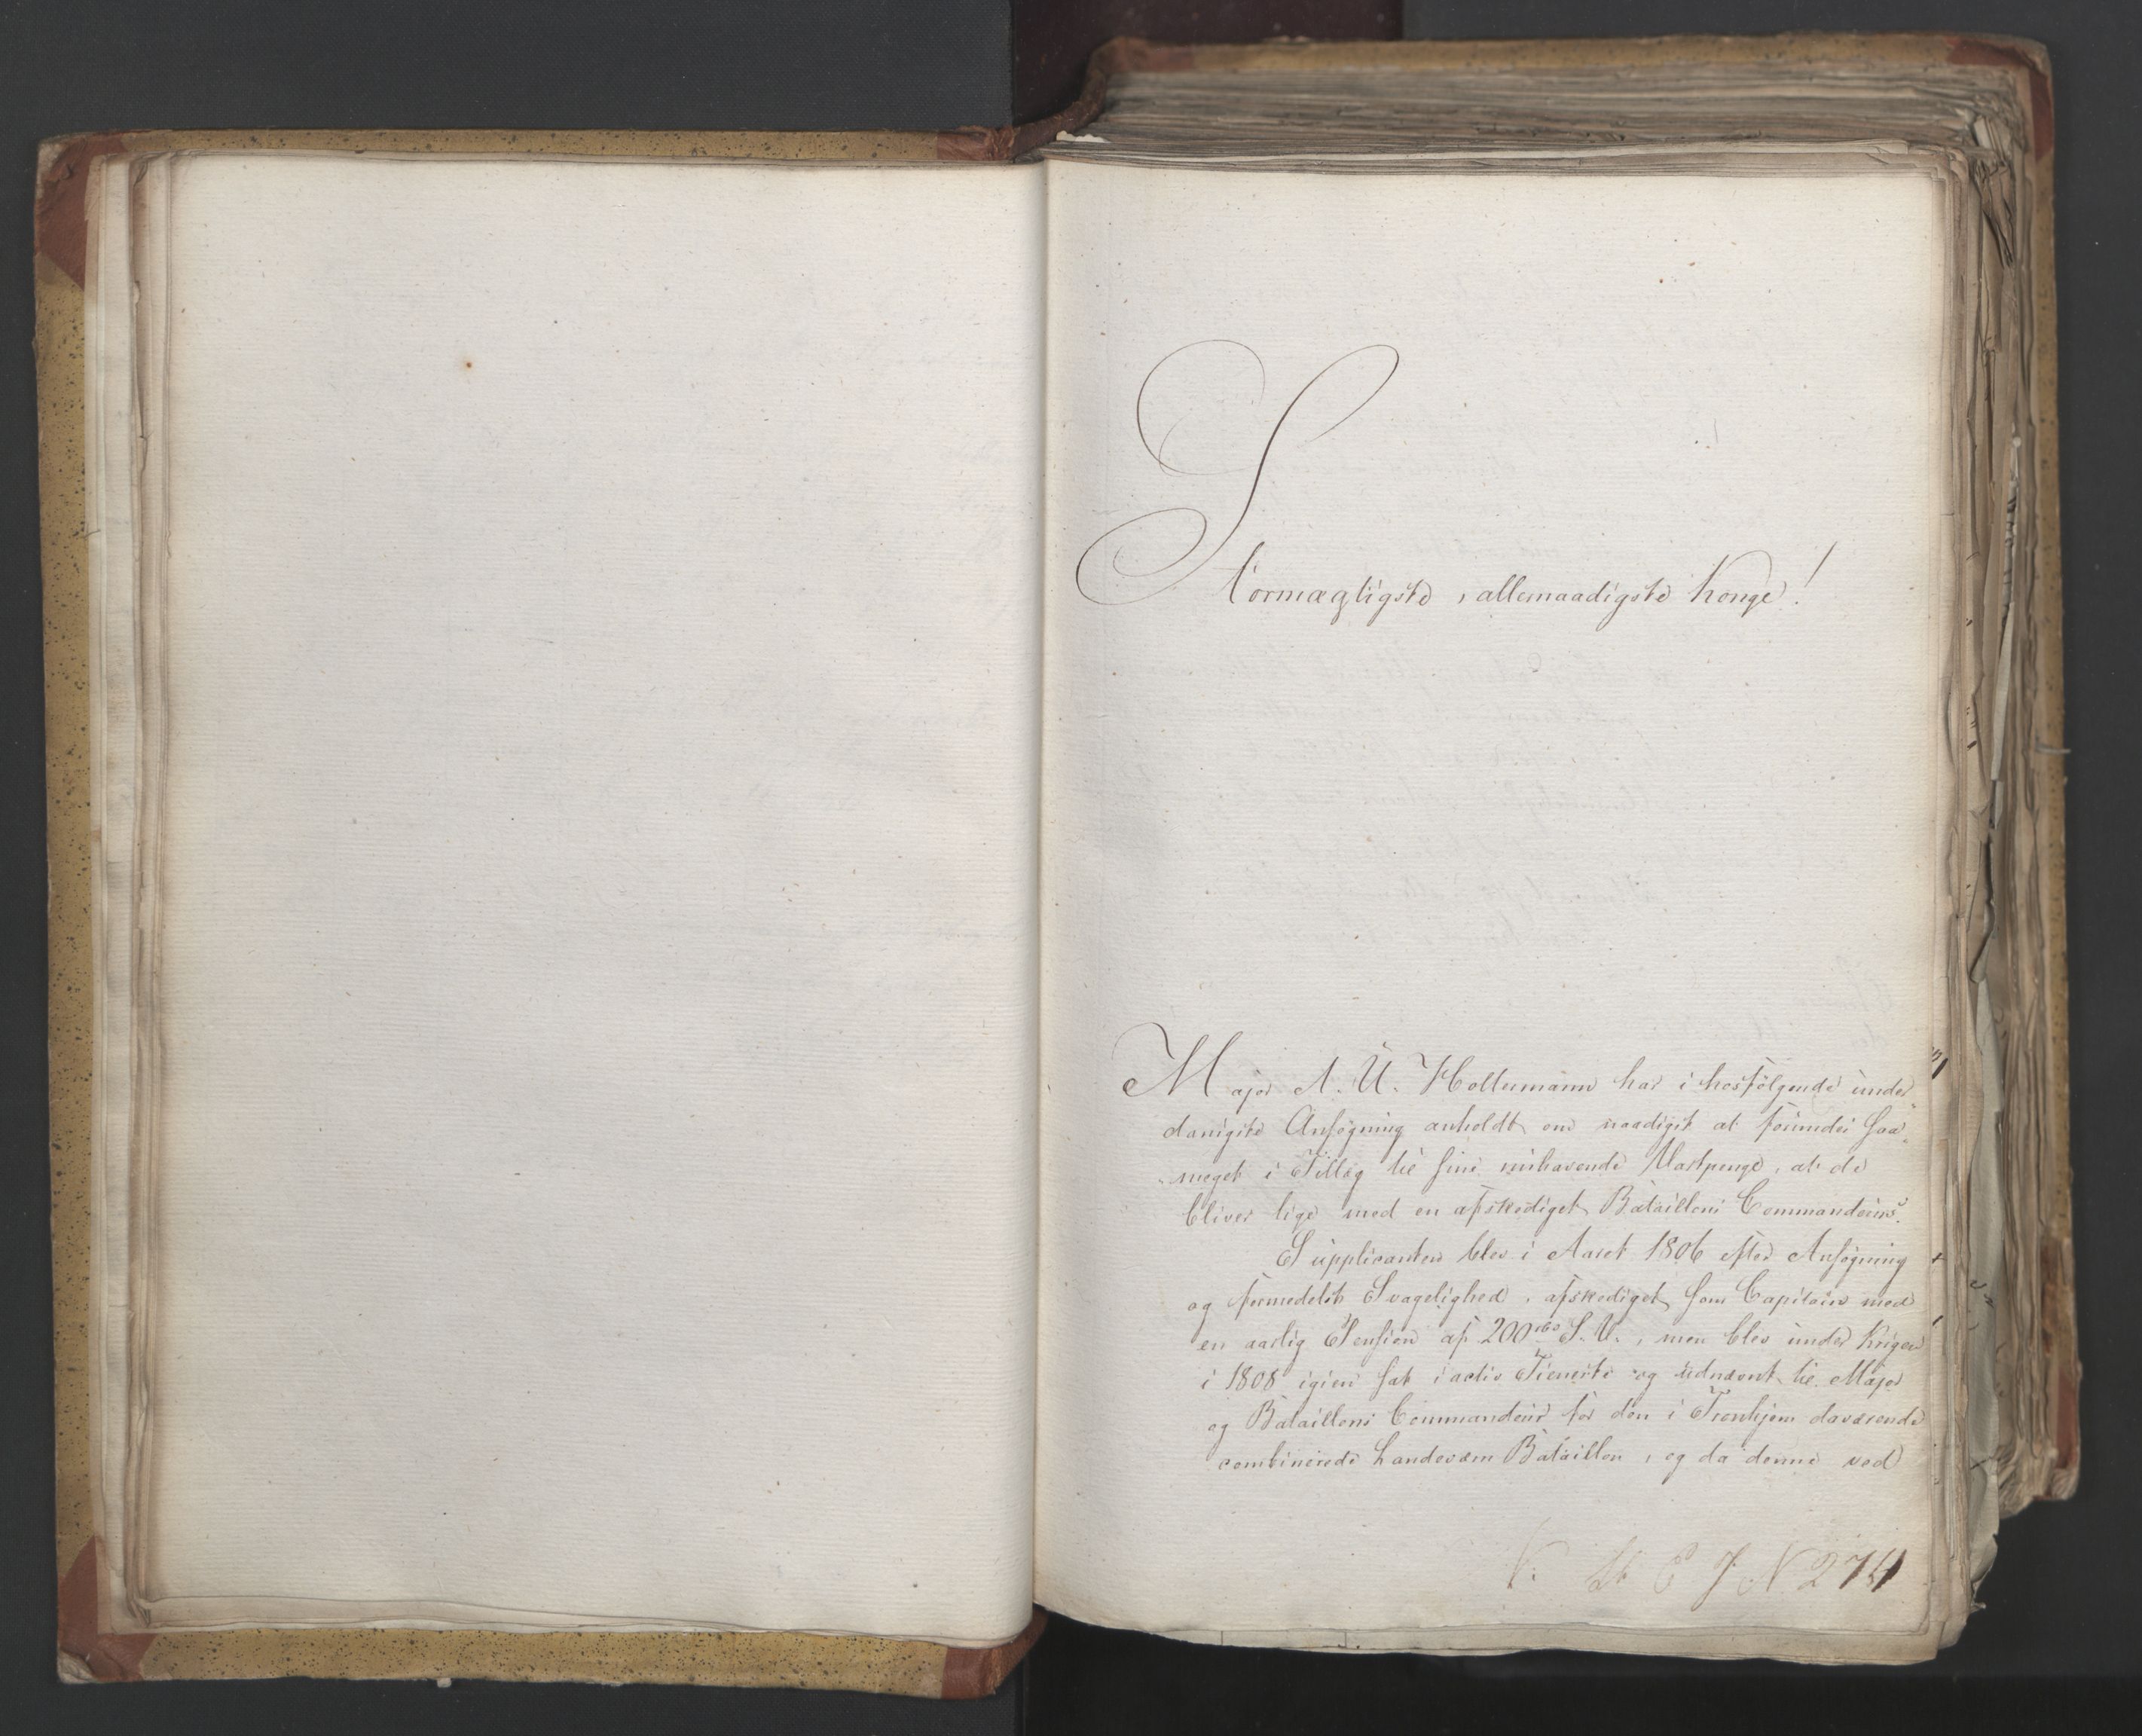 Stormægtigste, allernaadigste Konge!
Major A. U. Holtermann har i hosfølgende under-
danigste Ansøgning anholdt om naadigst at forundes saa-
meget i Tillæg til sine nuhavende Vartpenge, at de
bliver lige med en afskediget Batallions Commandeurs.
Supplicanten blev i Aaret 1806 efter Ansøgning
og formedelst Svagelighed, afskediget som Capitain med
en aarlig Pension af 200 rbd S. V., men blev under Krigen
i 1808 igien sat i activ Tieneste og udnævnt til Major
og Bataillons Commandeur for den i Tronhjem daværende
combinerede Landeværn Bataillon, og da denne ved
N. 274